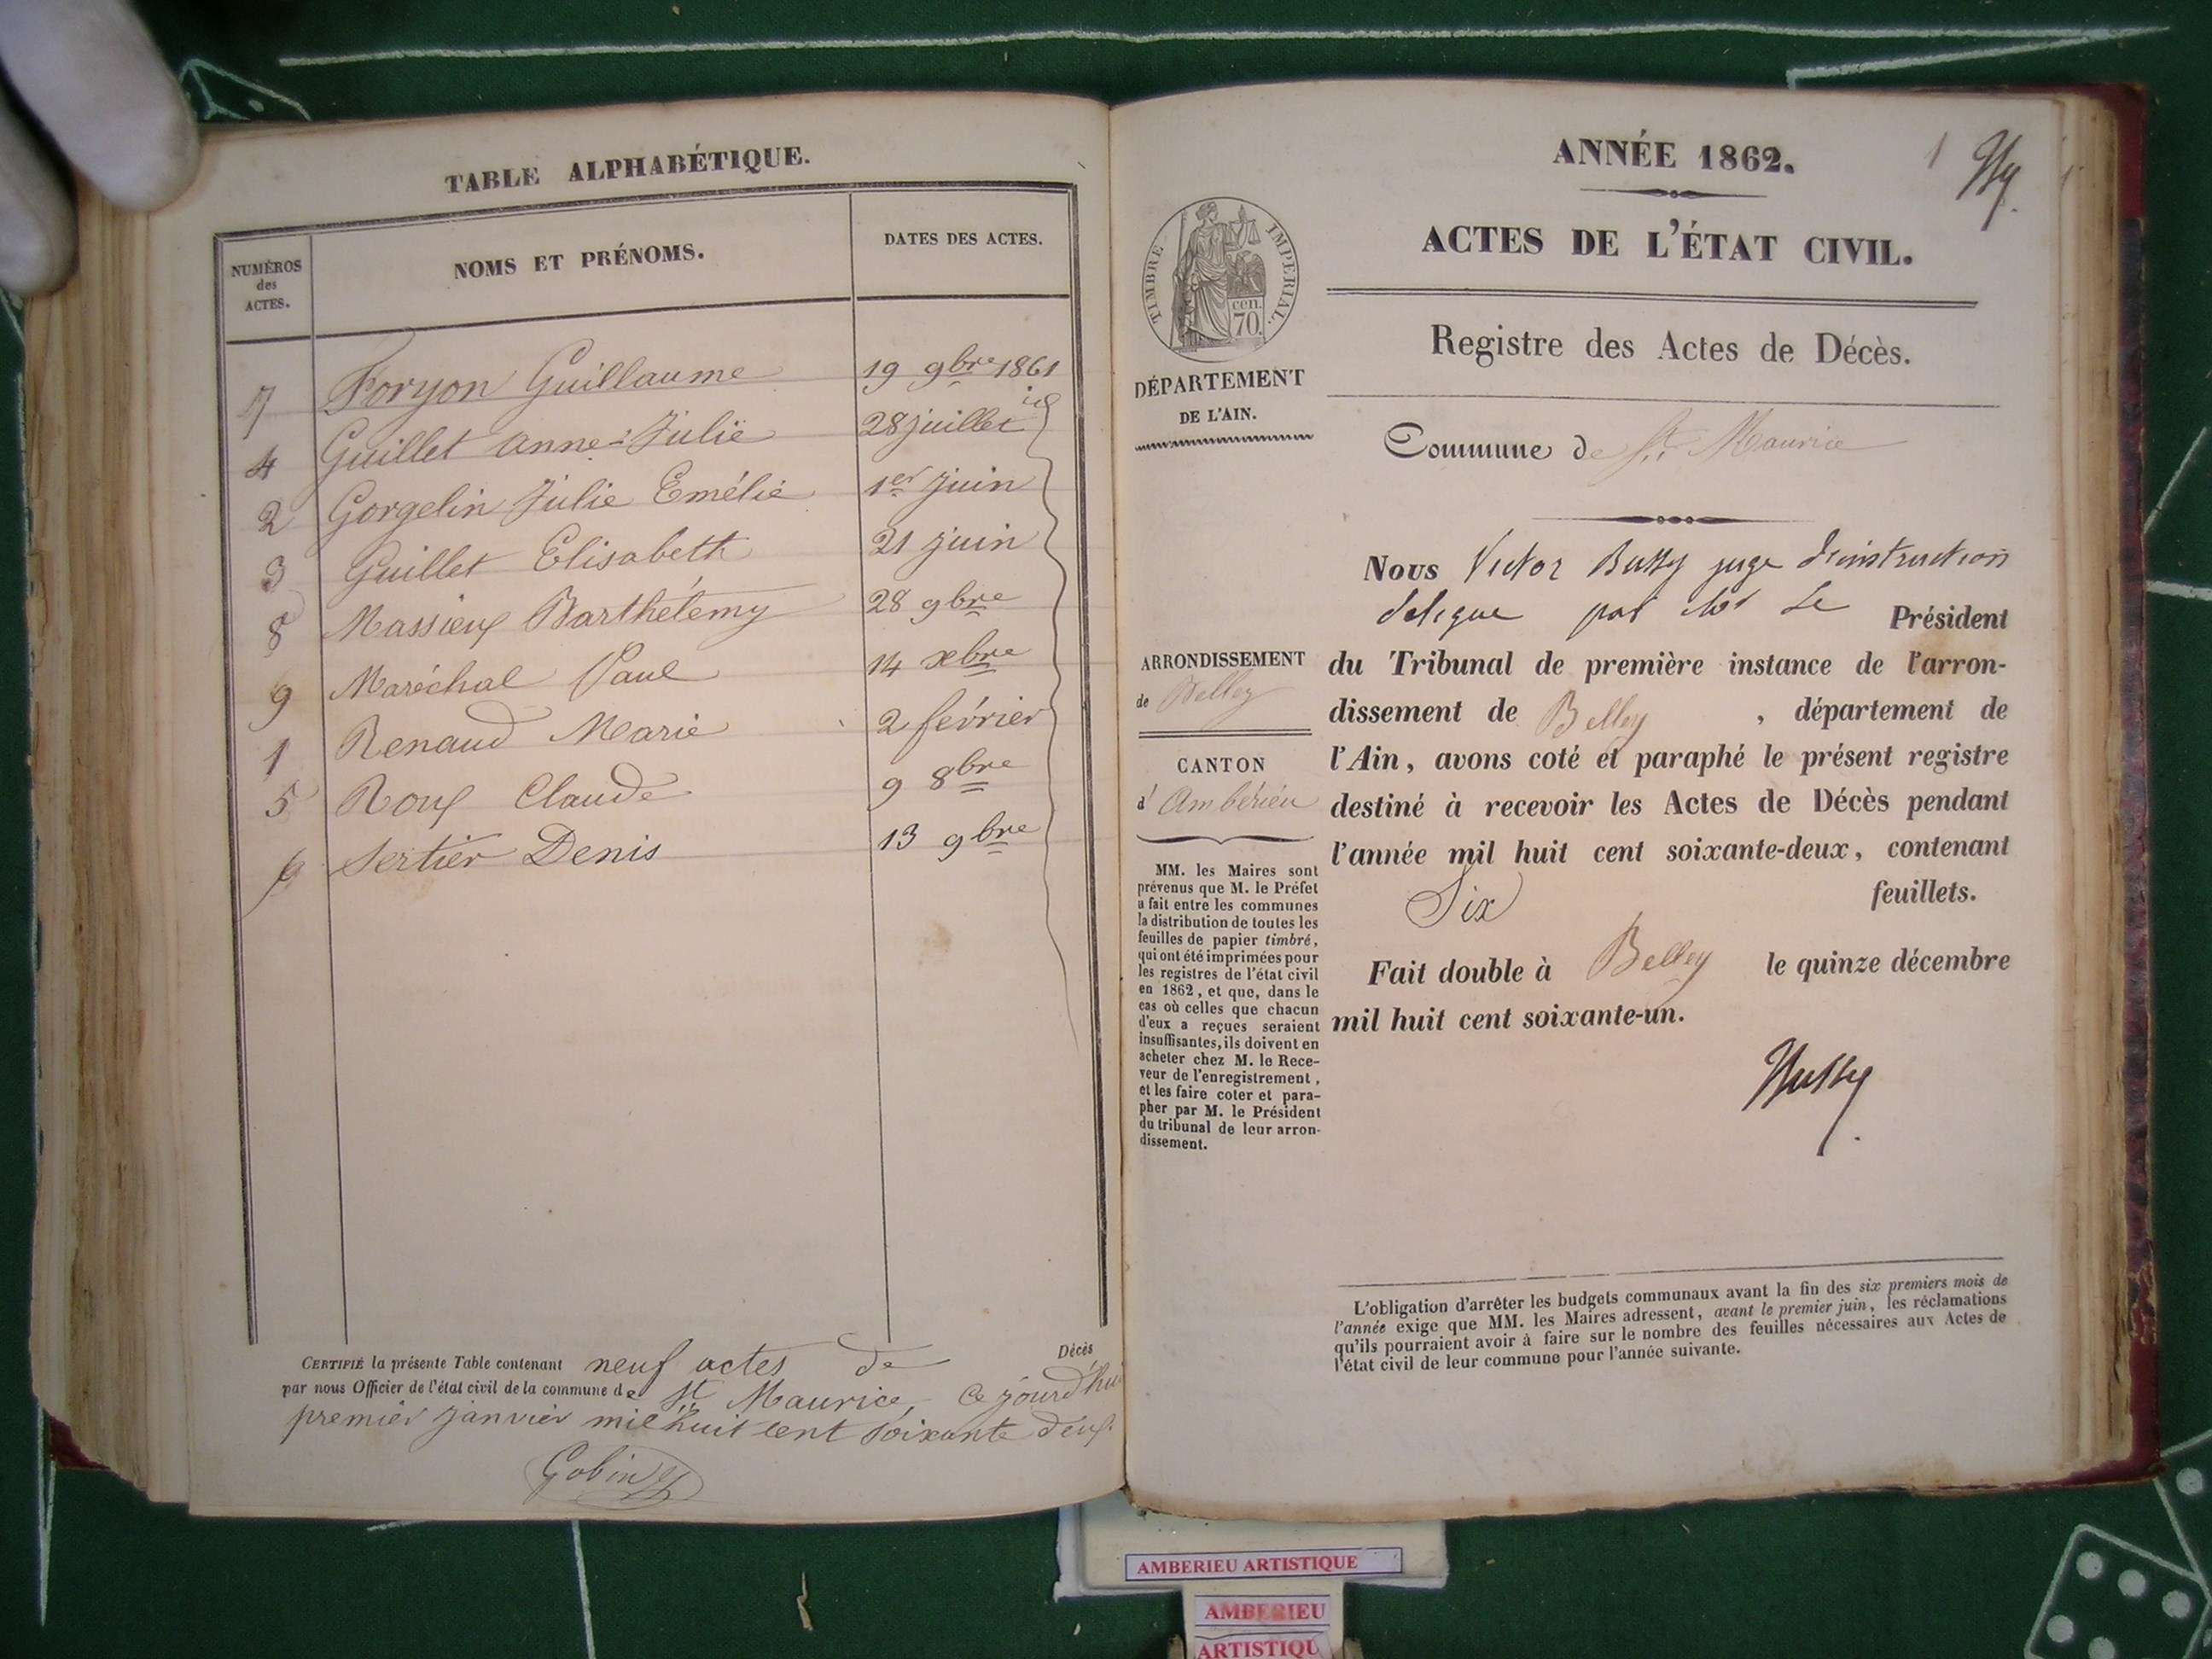 TABLE ALPHABÉTIQUE.
NUMÉROS des ACTES.
NOMS ET PRÉNOMS.
DATES DES ACTES.
7 Foryon Guillaume 19 9bre 1861
4 Guillet anne-Julie 28 juillet id
2 Gorgelin Julie Emélie 1er juin
3 Guillet Elisabeth 21 juin
8 Massieux Barthélemy 28 9bre
9 Maréchal Paul 14 xbre
1 Renaud Marie 2 février
5 Roux Claude 9 8bre
6 Sertier Denis 13 9bre
CERTIFIÉ la présente Table contenant neuf actes de Décès
par nous Officier de l'état civil de la commune de St Maurice, Ce jourd'hui
premier janvier mil huit cent soixante deux.
Gobin
1
ANNÉE 1862.
ACTES DE L'ÉTAT CIVIL.
Registre des Actes de Décès.
Commune de St Maurice
TIMBRE IMPERIAL.
cen.
70.
DÉPARTEMENT
DE L'AIN.
ARRONDISSEMENT
de Belley
CANTON
d' Ambérieu
MM. les Maires sont
prévenus que M. le Préfet
a fait entre les communes
la distribution de toutes les
feuilles de papier timbré,
qui ont été imprimées pour
les registres de l'état civil
en 1862, et que, dans le
cas où celles que chacun
d'eux a reçues seraient
insuffisantes, ils doivent en
acheter chez M. le Rece-
veur de l'enregistrement,
et les faire coter et para-
pher par M. le Président
du tribunal de leur arron-
dissement.
Nous Victor Bussy juge d'instruction
délégué par Mr Le Président
du Tribunal de première instance de l'arron-
dissement de Belley , département de
l'Ain, avons coté et paraphé le présent registre
destiné à recevoir les Actes de Décès pendant
l'année mil huit cent soixante-deux, contenant
Six feuillets.
Fait double à Belley le quinze décembre
mil huit cent soixante-un.
Bussy
L'obligation d'arrêter les budgets communaux avant la fin des six premiers mois de
l'année exige que MM. les Maires adressent, avant le premier juin, les réclamations
qu'ils pourraient avoir à faire sur le nombre des feuilles nécessaires aux Actes de
l'état civil de leur commune pour l'année suivante.
AMBERIEU ARTISTIQUE
AMBERIEU
ARTISTIQU